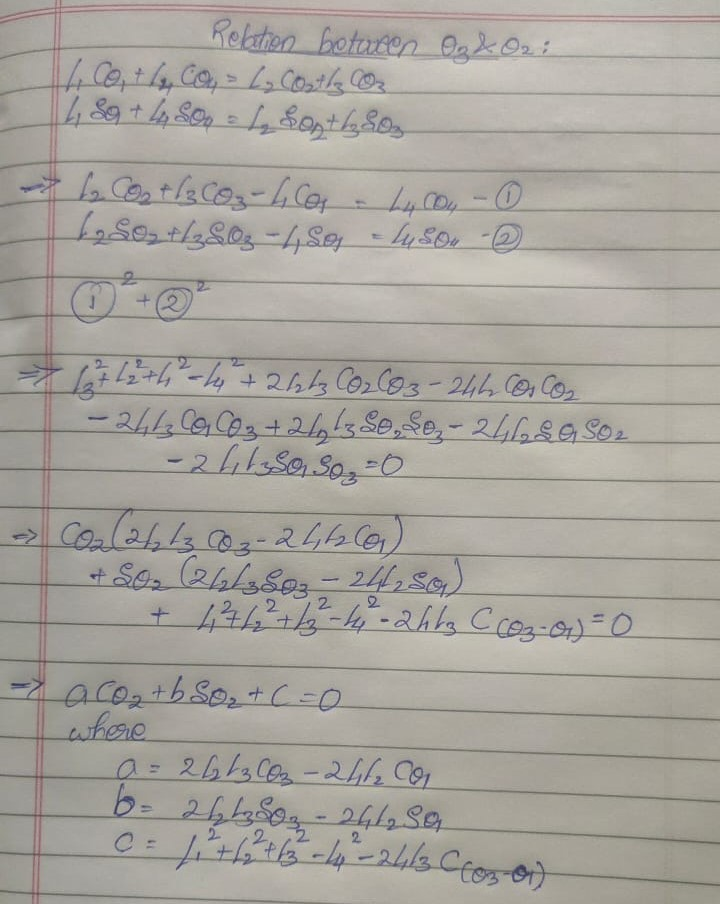 Relation between θ3 & θ2 :
L1Cθ1 + L4Cθ4 = L2Cθ2 + L3Cθ3
L1Sθ1 + L4Sθ4 = L2Sθ2 + L3Sθ3
⇒ L2Cθ2 + L3Cθ3 - L1Cθ1 = L4Cθ4 - ①
L2Sθ2 + L3Sθ3 - L1Sθ1 = L4Sθ4 - ②
①² + ②²
⇒ L3² + L2² + L1² - L4² + 2L2L3Cθ2Cθ3 - 2L1L2Cθ1Cθ2
- 2L1L3Cθ1Cθ3 + 2L2L3Sθ2Sθ3 - 2L1L2Sθ1Sθ2
- 2L1L3Sθ1Sθ3 = 0
⇒ Cθ2(2L2L3Cθ3 - 2L1L2Cθ1)
+ Sθ2(2L2L3Sθ3 - 2L1L2Sθ1)
+ L1² + L2² + L3² - L4² - 2L1L3 C(θ3-θ1) = 0
⇒ aCθ2 + bSθ2 + C = 0
where
a = 2L2L3Cθ3 - 2L1L2Cθ1
b = 2L2L3Sθ3 - 2L1L2Sθ1
c = L1² + L2² + L3² - L4² - 2L1L3 C(θ3-θ1)